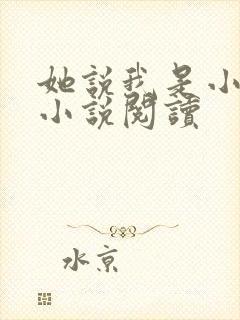 她說我是小
小說閱讀
水京